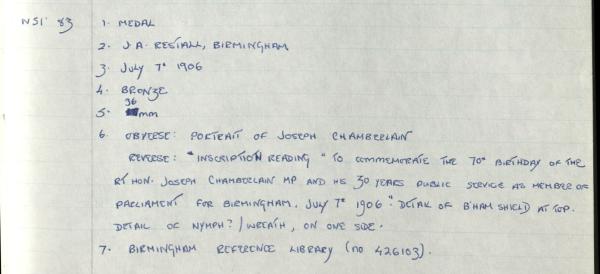 NSI' 83 1. MEDAL
2. J A. RESTALL, BIRMINGHAM
3. JULY 7th 1906
4. BRONZE
5. 36 mm
6. OBVERSE: PORTRAIT OF JOSEPH CHAMBERLAIN
REVERSE: "INSCRIPTION READING "TO COMMEMORATE THE 70th BIRTHDAY OF THE
RT HON. JOSEPH CHAMBERLAIN MP AND HIS 30 YEARS PUBLIC SERVICE AS MEMBER OF
PARLIAMENT FOR BIRMINGHAM. JULY 7th 1906". DETAIL OF B'HAM SHIELD AT TOP.
DETAIL OF NYMPH?/WREATH, ON ONE SIDE.
7. BIRMINGHAM REFERENCE LIBRARY (no 426103).